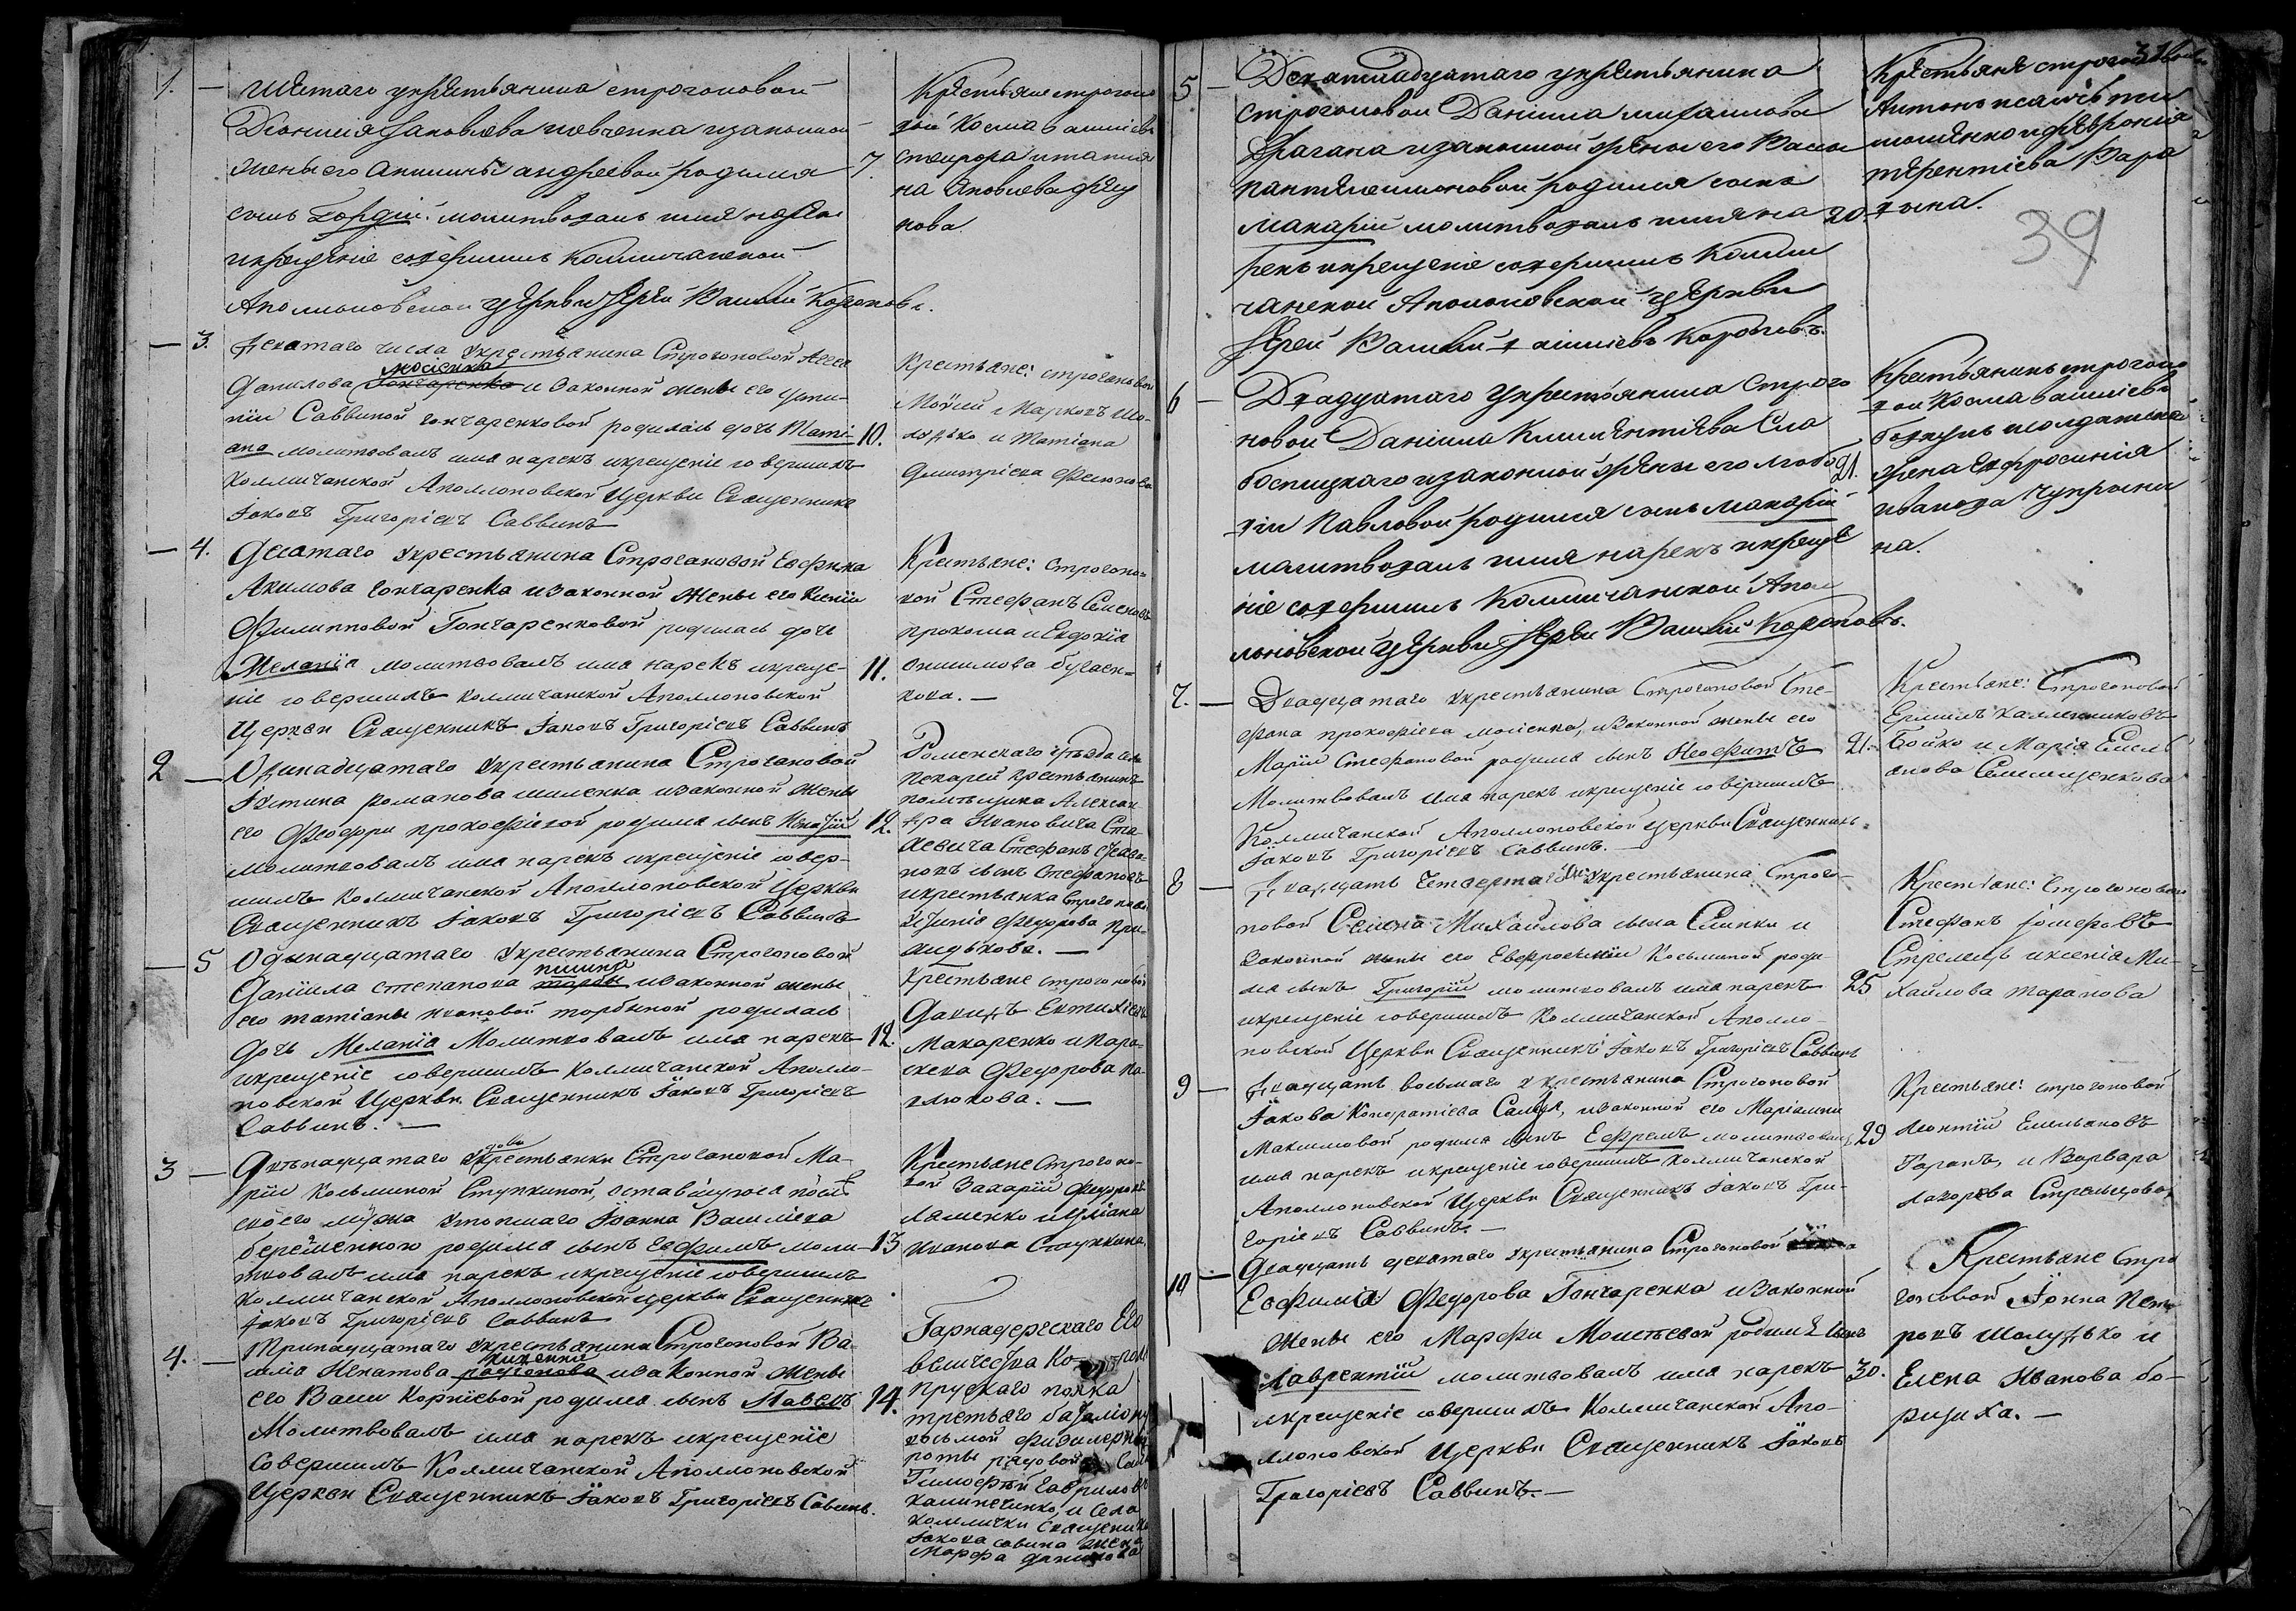 1. — шестаго укрестьянина строгоновой
Дiонисiя Яковлева шевченка изаконной
жены его Анисiи андреевой родился 7.
сынъ Гордiй молитвовалъ имя нарекъ
икрещенiе совершилъ Коммичанской
Аполлоновской церкви Iерей Василiй Коронов
Крестьяне строгоно
вой Косма
на Яковлева
нова
— 3. Десятаго числа укрестьянина Строгоновой
Данилова мосiенка Гончаренка и законной жены его
нiи Саввиной гончаренковой родилась дочь Татi- 10.
ана молитвовалъ имя нарекъ икрещенiе совершилъ
Коммичанской Аполлоновской Церкви Священникъ
Iаковъ Григорiевъ Саввинъ
Крестьяне: строгоновой
Мойсей Марковъ Шо-
лудько и Татiана
Димитрiева
— 4. Десятаго укрестьянина Строгановой Евфима
Акимова гончаренка изаконной жены его Ксенiи
Филипповой Гончаренковой родилась дочь
Меланiя молитвовалъ имя нарекъ икреще- 11.
нiе совершилъ Коммичанской Аполлоновской
Церкви Священникъ Iаковъ Григорiевъ Саввинъ
Крестьяне: строгоно-
вой Стефанъ Семеновъ
прокопа и Евдокiя
онисимова бугаен-
кова. —
2 — Одинадцатаго укрестьянина Строгановой
Iустина романова шиленка изаконной жены
его Феодоры прокофiевой родился сынъ 12.
молитвовалъ имя нарекъ икрещенiе совер-
шилъ Коммичанской Аполлоновской Церкви
Священникъ Iаковъ Григорiевъ Саввинъ
Роменскаго уѣзда села
пекарей крестьянинъ
помѣщика Алексан
дра Ивановича
Стефанъ
сынъ Стефановъ
икрестьянка Строгонова
Феодорова При-
лидькова. —
— 5 Одынадцатаго укрестьянина Строгоновой
Данiила степанова изаконной жены
его татiаны ивановой торбиной родилась
дочь Меланiя Молитвовалъ имя нарекъ 12.
икрещенiе совершилъ Коммичанской Аполло-
новской Церкви Священникъ Iаковъ Григорiевъ
Саввинъ. —
Крестьяне строгоновой
Давидъ Евтихiевъ
Макаренко и Пара-
скева Федорова Па-
влюкова. —
3 — Двѣнадцатаго вдовы укрестьянки Строгановой Ма-
рiи Козьминой Ступкиной, оставшуюся послѣ
своего мужа утопшаго Iоанна Василiева
беременною родился сынъ Евфимъ моли- 13
твовалъ имя нарекъ икрещенiе совершилъ
Коммичанской Аполлоновской церкви Священникъ
Iаковъ Григорiевъ Саввинъ
Крестьяне Строгоно-
вой Захарiй Федоровъ
Ляшенко и Улiана
Иванова Ступкина.
4. — Тринадцатаго укрестьянина Строгоновой Ва-
силiя Игнатова родiонова изаконной жены
его Васси Корнiевой родился сынъ Павелъ 14.
Молитвовалъ имя нарекъ икрещенiе
Совершилъ Коммичанской Аполлоновской
Церкви Священникъ Iаковъ Григорiевъ Савинъ.
Гарнадерскаго Его
величества Ко роля
прускаго полка
третьяго баталiону
восьмой физилерной
роты рядовой
Тимофѣй Гаврилов
Калиниченко, и Села
Коммички Священника
Iакова савина жена
Марфа данилова
39
5 — Девятнадцатаго укрестьянина
строгоновой Данiила михаилова
Драгана изаконной жены его Васы
пантелеимоновой родился сынъ
макарiй молитвовалъ имя на 20.
рекъ икрещенiе совершилъ Комми
чанской Аполоновской церкви
Iерей Василiй Василiевъ Коронов
Крестьяне строгоновой
Антонъ
и феврония
терентiева Вара
вина.
6 — Двадцатаго Укрестьянина Строго
новой Данiила Климентиева Сла
боспицкаго изаконной жены его любо 21.
вiи Павловой родился сынъ макарiй
молитвовалъ имя нарекъ икреще
нiе совершилъ Коммичанской Апол
лоновской церкви Iерей Василiй Коронов.
Крестьянинъ строгоно
вой Косма василiевъ
божукъ исолдатская
жена Евфросинiя
иванова Чуприни
на.
7. — Двадцатаго укрестьянина Строгоновой Сте-
фана прокофiева мосiенка, изаконной жены его
Марiи Стефановой родился сынъ Неофитъ 21.
Молитвовалъ имя нарекъ икрещенiе совершилъ
Коммичанской Аполлоновской церкви Священникъ
Iаковъ Григорiевъ Саввинъ. —
Крестьяне: Строгоновой
Ермилъ каллениковъ
Бойко и Марiя Емель
янова Семешенкова
8 — Двадцать Четвертаго укрестьянина Строго-
новой Семена Михайлова сына Слипки и
законной жены его Евфросинiи Козьминой роди
лся сынъ Григорiй молитвовалъ имя нарекъ 25
икрещенiе совершилъ Коммичанской Аполло-
новской Церкви Священникъ Iаковъ Григорiевъ Саввинъ
Крестьяне: Строгоновой
Стефанъ Iосифовъ
Стрелецъ иксенiя Ми-
хайлова таранова
9 — Двадцать восьмаго укрестьянина Строгоновой
Iакова Кондратiева изаконной его Марiамны
Максимовой родился сынъ Ефремъ молитвовалъ 29
имя нарекъ икрещенiе совершилъ Коммичанской
Аполлоновской Церкви Священникъ Iаковъ Гри-
горiевъ Саввинъ. —
Крестьяне: строгоновой
Леонтiй Емельяновъ
Таранъ, и Варвара
лазорева Стрельцова
10 — Двадцать девятаго укрестьянина Строгоновой
Евфимiя Федорова Гончаренка изаконной
жены его Марфы Моисѣевой родился сынъ
Лаврентiй молитвовалъ имя нарекъ 30.
икрещенiе совершилъ Коммичанской Апо-
ллоновской Церкви Священникъ Iаковъ
Григорiевъ Саввинъ. —
Крестьяне Стро
гоновой Iоанна Пет
ровъ Шолудько и
Елена Иванова бо-
рисиха. —